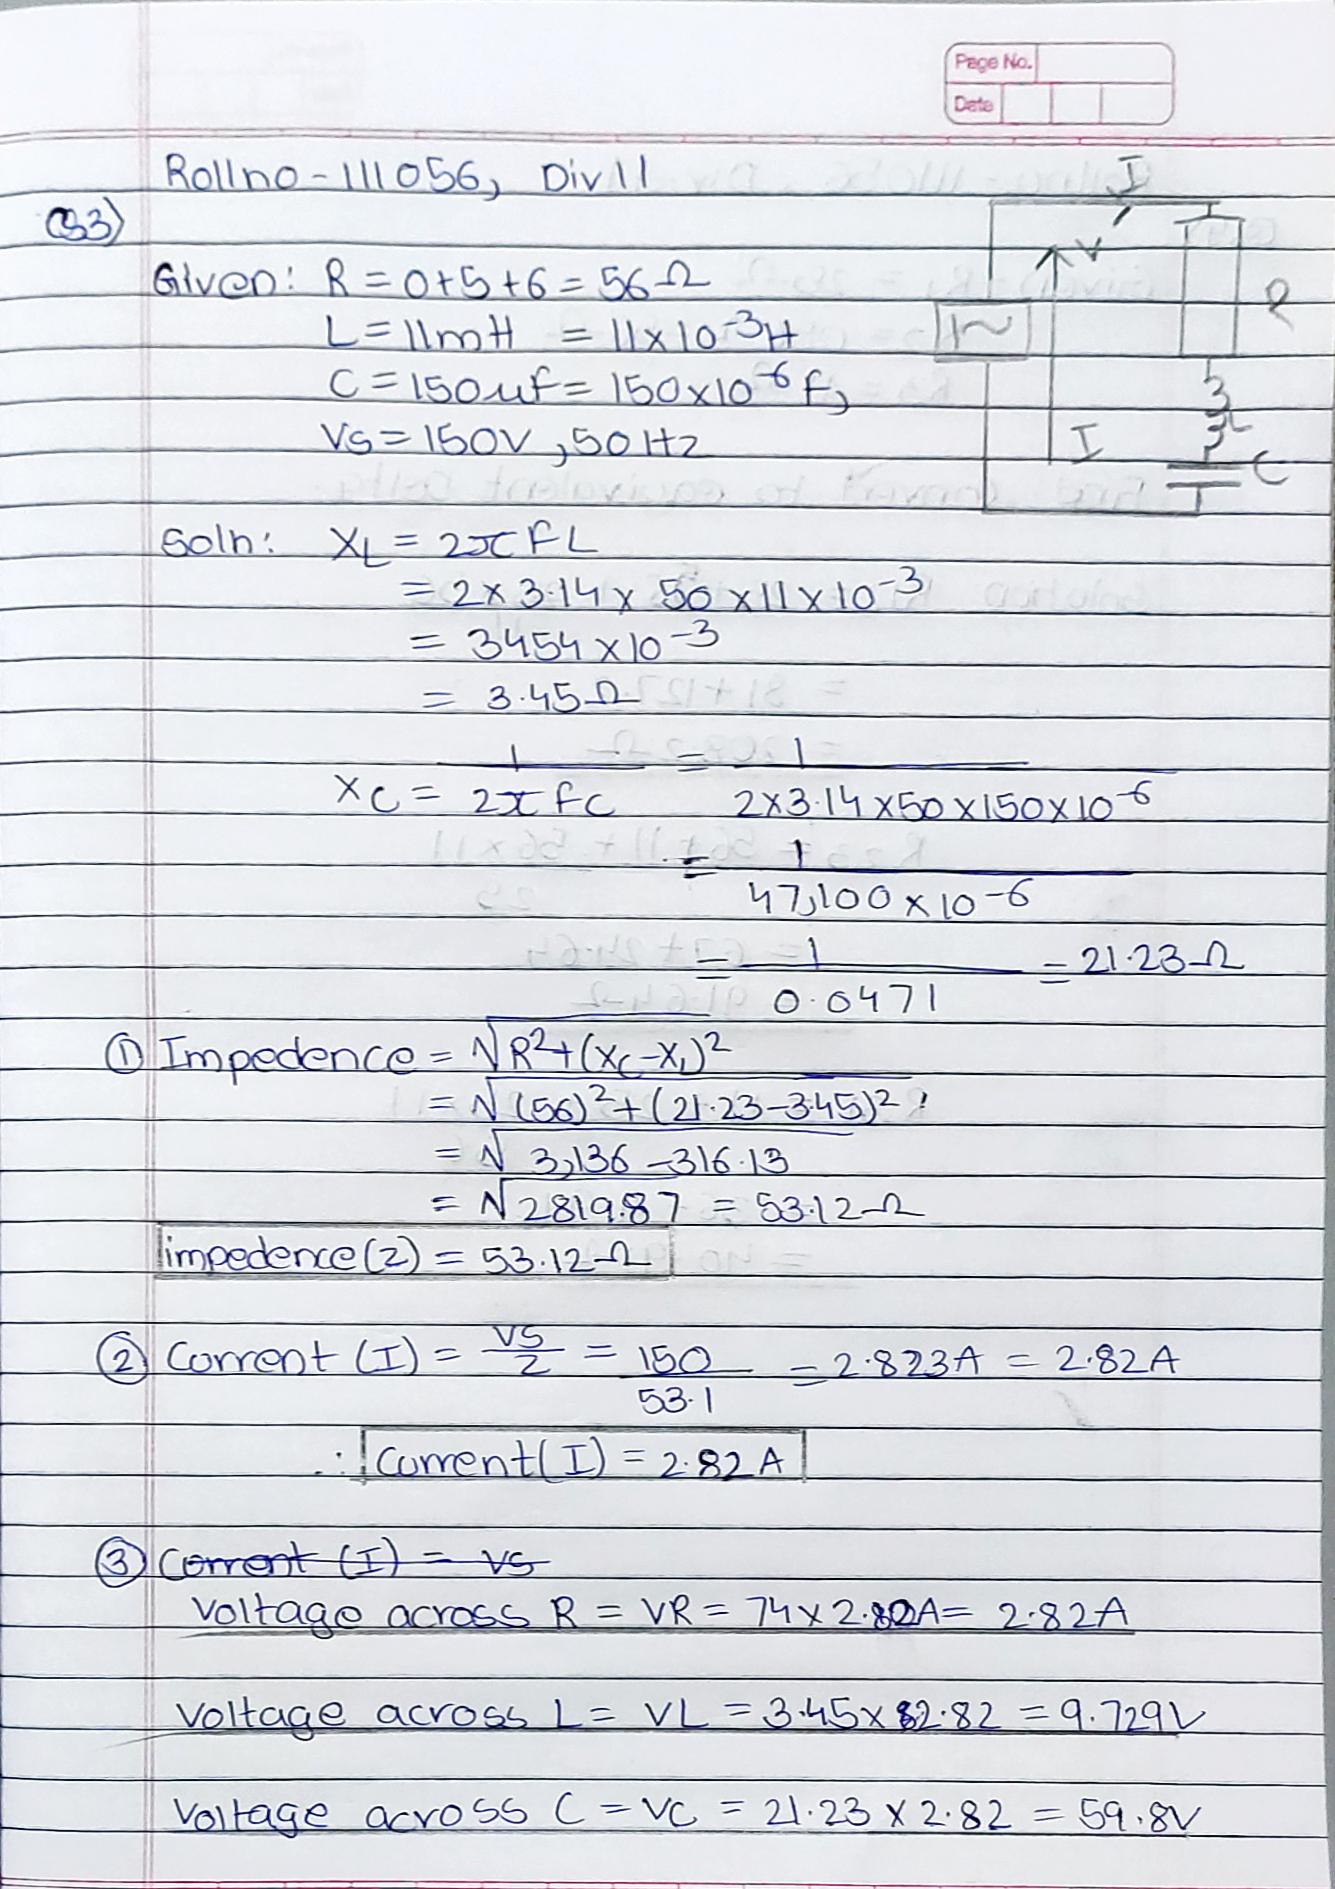 Page No.
Date
Rollno - 111056, Div 11
Q3)
Given: R = 0+5+6 = 56Ω
L = 11mH = 11×10-3H
C = 150uf = 150×10-6 f,
VS = 150V, 50Hz
I
V
R
L
I
C
Soln: XL = 2πFL
= 2×3.14×50×11×10-3
= 3454×10-3
= 3.45Ω
XC = 1/2πfC = 1/2×3.14×50×150×10-6
= 1/47,100×10-6
= 1/0.0471 = 21.23Ω
① Impedence = √R2+(XC-XL)2
= √(56)2+(21.23-3.45)2
= √3,136-316.13
= √2819.87 = 53.12Ω
impedence(Z) = 53.12Ω
② Current (I) = VS/Z = 150/53.1 = 2.823A = 2.82A
∴ Current(I) = 2.82A
③ Current (I) = VS
Voltage across R = VR = 74×2.82A = 2.82A
Voltage across L = VL = 3.45×2.82 = 9.729V
Voltage across C = VC = 21.23×2.82 = 59.8V